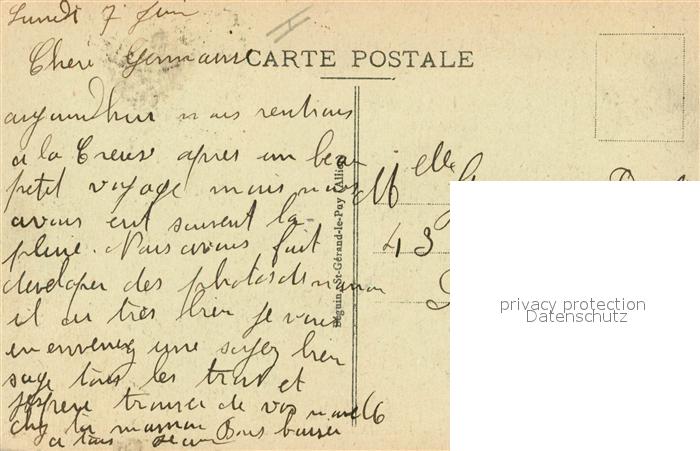 Lundi 7 Juin
CARTE POSTALE
Cheri Germaine
aujourdhui nous rentrons
a la Creuse apres un beau
petit voyage mais nous
avons eut souvent la
pluie. Nous avons fait
developer des photos de maman
il au très bien je vous
en enverrez une soyez bien
sage tous les trois et
jespere trouver de vos
chez ta maman
a tous Bons baiser
Melle
43
Béguin, St-Gérand-le-Puy (Allier)
privacy protection
Datenschutz